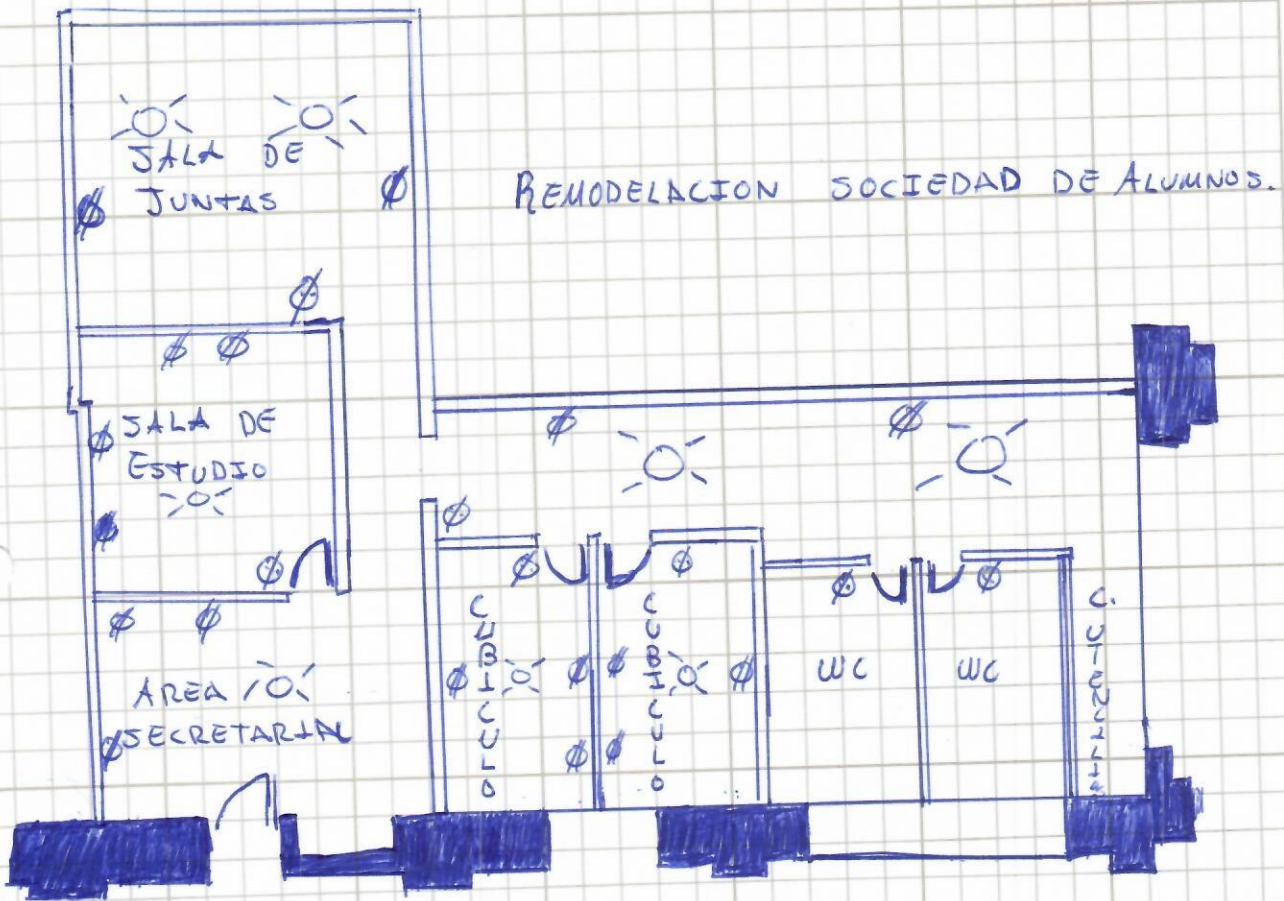 SALA DE
JUNTAS
REMODELACION SOCIEDAD DE ALUMNOS.
SALA DE
ESTUDIO
AREA
SECRETARIAL
CUBICULO
CUBICULO
WC
WC
C.